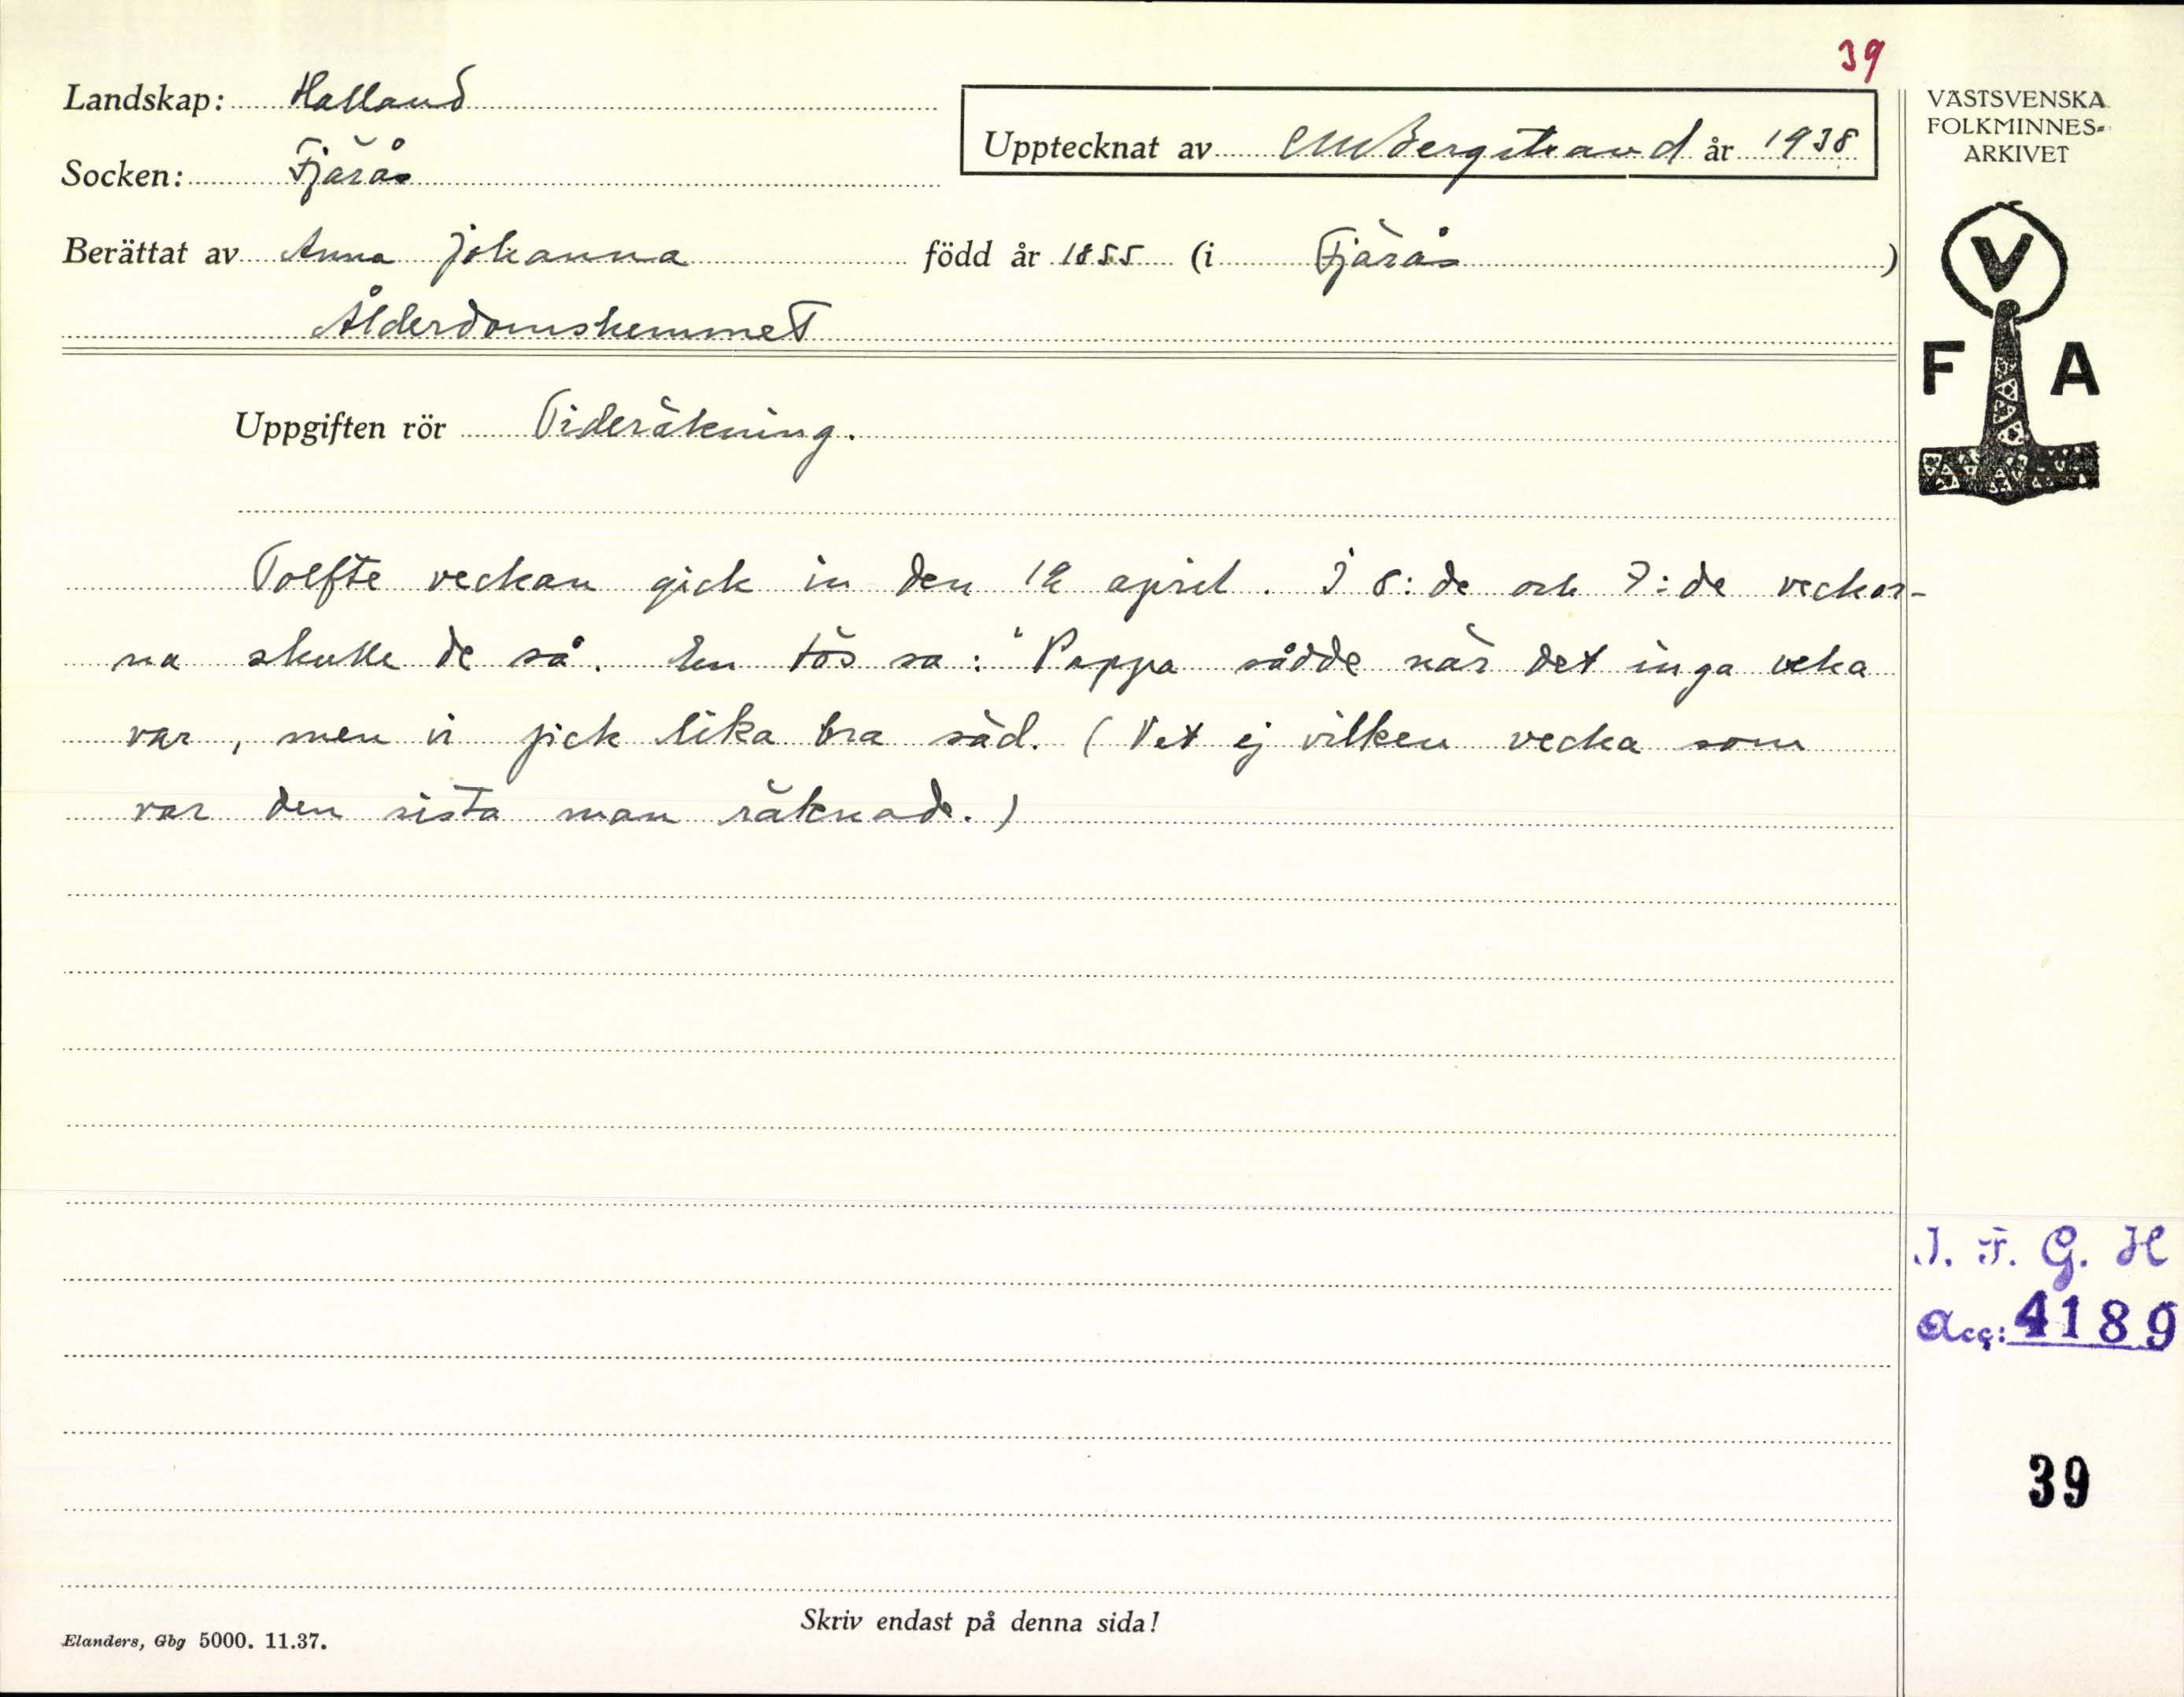 39
Landskap: Halland
Upptecknat av CM Bergstrand år 1938
Socken: Fjärås
Berättat av Anna Johanna född år 1855 (i Fjärås )
Ålderdomshemmet
Uppgiften rör Tideräkning.
Tolfte veckan gick in den 12 april. I 8:de och 7:de veckor-
na skulle de så. En tös sa: "Pappa sådde när det inga veka
var, men vi fick lika bra säd. (Vet ej vilken vecka som
var den sista man räknade.)
VÄSTSVENSKA
FOLKMINNES-
ARKIVET
V
F A
I. F. G. H
Acc: 4189
39
Skriv endast på denna sida!
Elanders, Gbg 5000. 11.37.